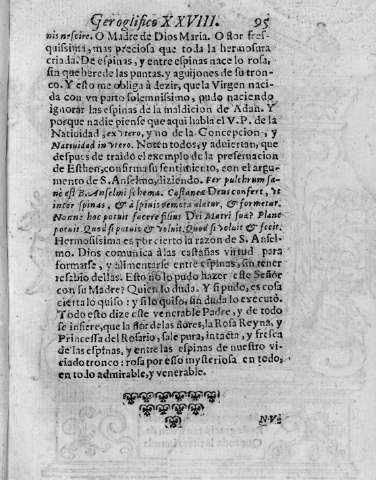 Geroglifico XXVIII. 95
nis nescire. O Madre de Dios Maria. O flor fres-
quissima, mas preciosa que toda la hermosura
criada. De espinas, y entre espinas nace lo rosa,
sin que herede las puntas, y aguijones de su tron-
co. Y esto me obliga à dezir, que la Virgen naci-
da con vn parto solemnissimo, pudo naciendo
ignorar las espinas de la maldicion de Adan. Y
porque nadie piense que aqui habla el V. P. de la
Natiuidad, ex vtero, y no de la Concepcion, y
Natiuidad in vtero. Noten todos, y aduiertan, que
despues de traido el exemplo de la preseruacion
de Esther, confirma su sentimiento, con el argu-
mento de S. Anselmo, diziendo. Per pulchrum sa-
nè est B. Anselmi schema. Castaneæ Deus confert, vt
inter spinas, & à spinis remota alatur, & formetur.
Nonne hac potuit facere filius Dei Matri suæ? Planè
potuit. Quod si potuit & voluit. Quod si voluit & fecit.
Hermosissima es por cierto la razon de S. Ansel-
mo. Dios comunica à las castañas virtud para
formarse, y alimentarse entre espinas, sin tener
resabio dellas. Esto no lo pudo hazer este Señor
con su Madre? Quien lo duda. Y si pudo, es cosa
cierta lo quiso: y si lo quiso, sin duda lo executò.
Todo esto dize este venerable Padre, y de todo
se infiere, que la flor de las flores, la Rosa Reyna, y
Princessa del Rosario, sale pura, intacta, y fresca
de las espinas, y entre las espinas de nuestro vi-
ciado tronco: rosa por esso mysteriosa en todo,
en todo admirable, y venerable.